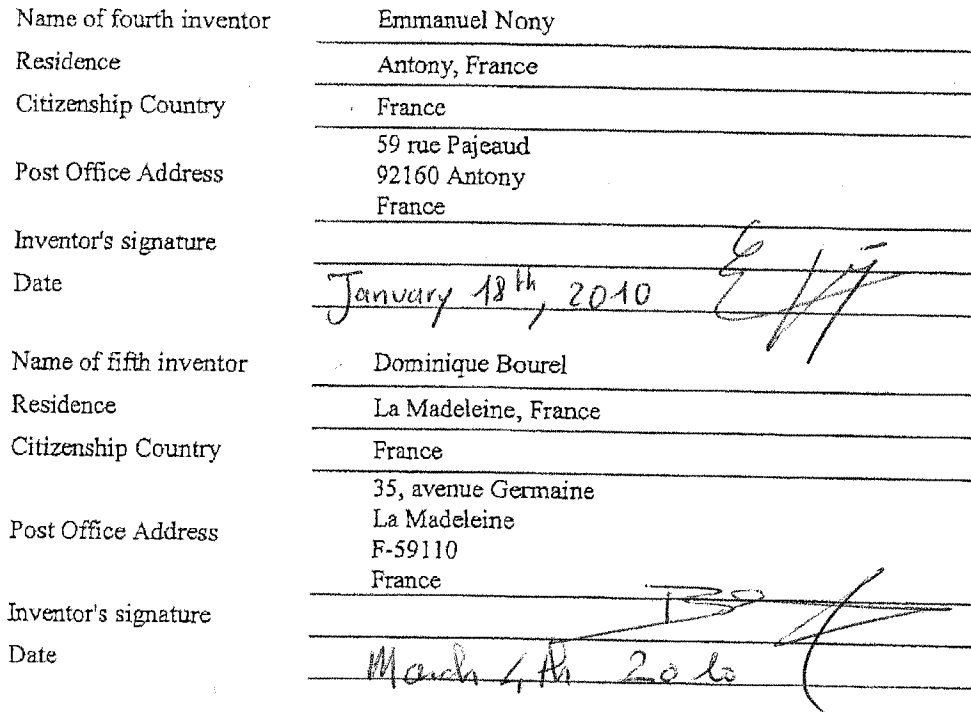 Name of fourth inventor Emmanuel Nony
Residence Antony, France
Citizenship Country France
59 rue Pajeaud
Post Office Address 92160 Antony
France
Inventor's signature
Date January 18th, 2010
Name of fifth inventor Dominique Bourel
Residence La Madeleine, France
Citizenship Country France
35, avenue Germaine
La Madeleine
Post Office Address
F-59110
France
Inventor's signature
Date March 4th 2010